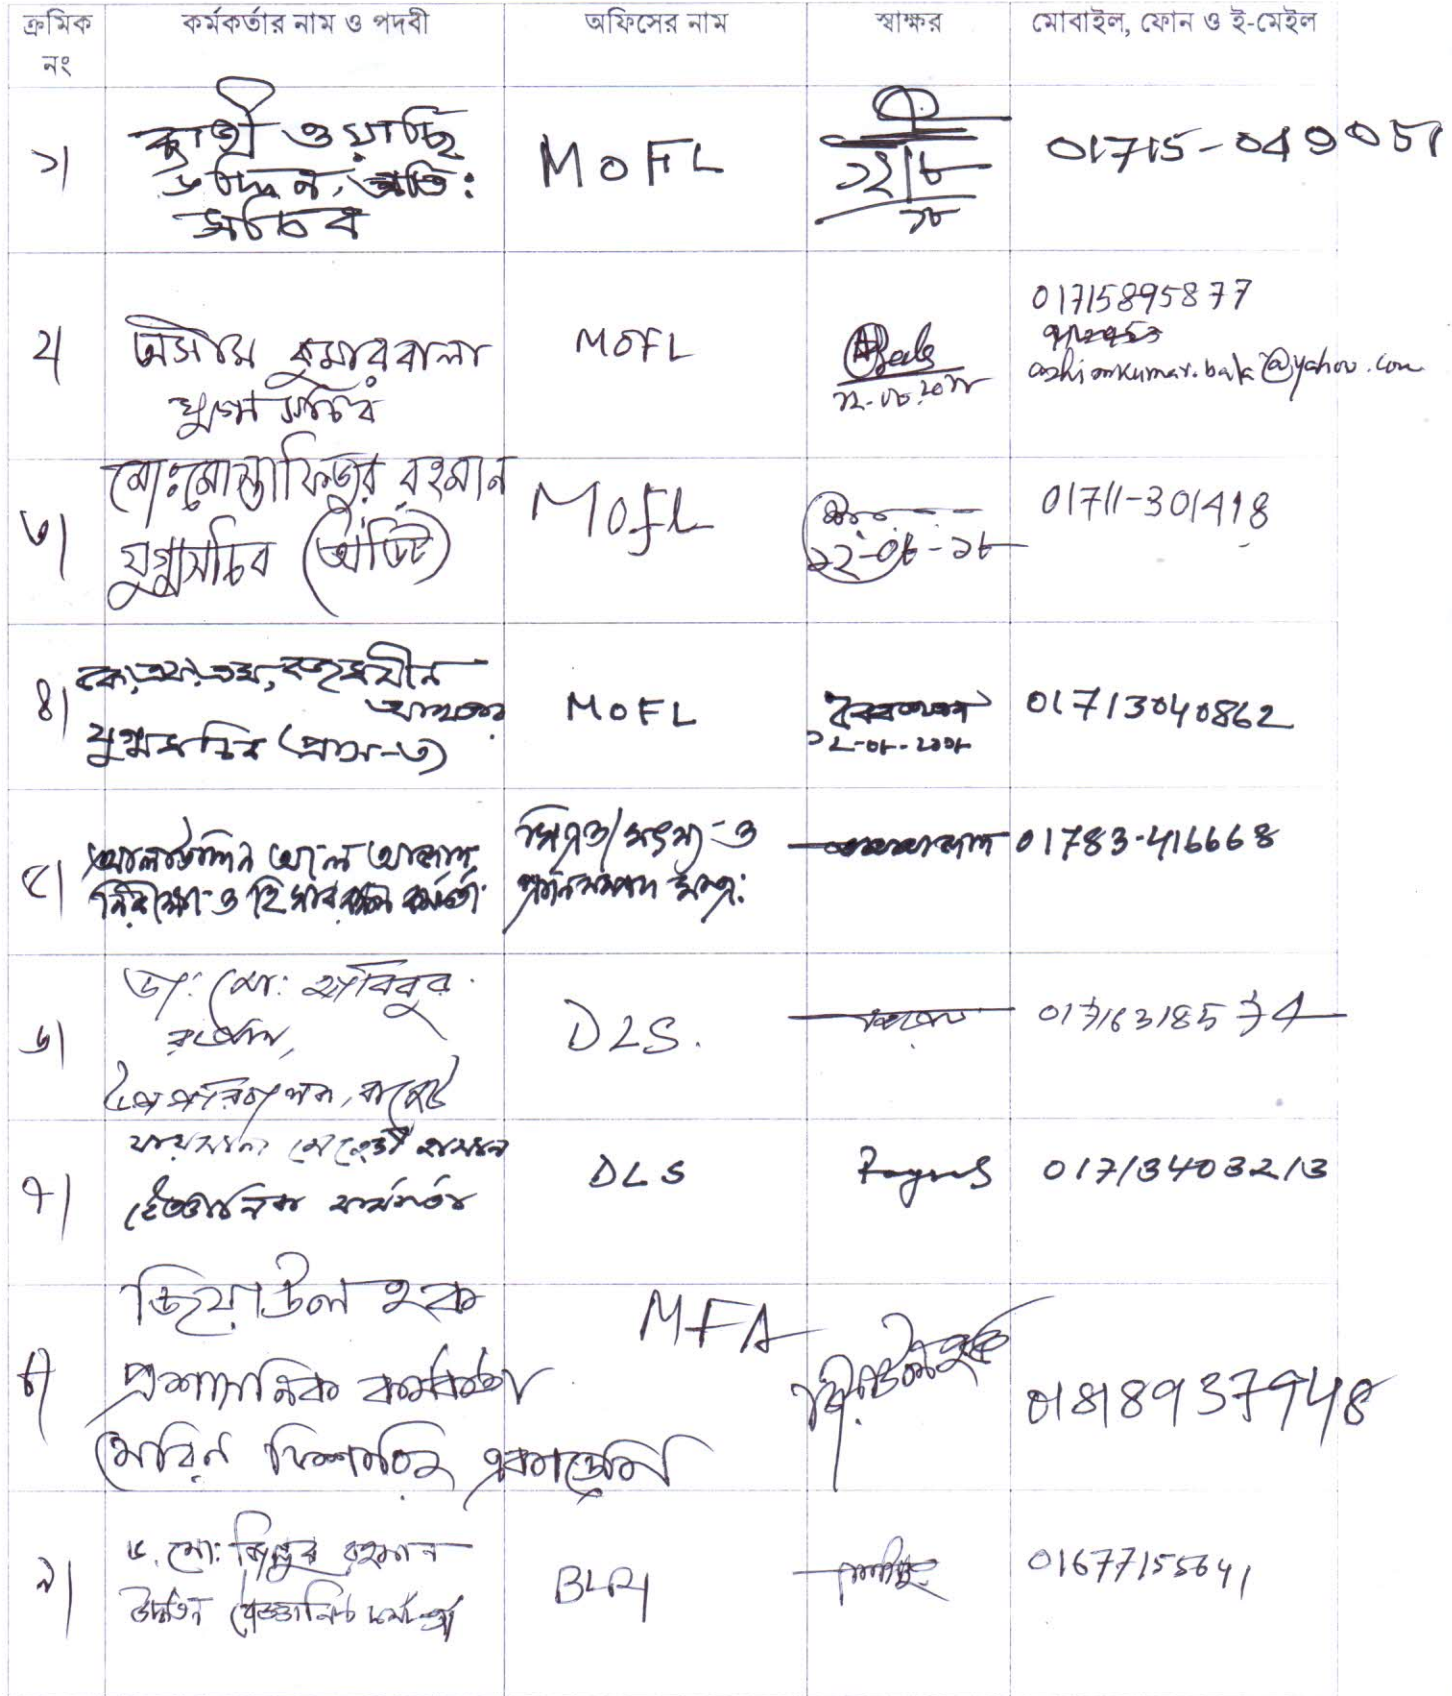 ক্রমিক নং
কর্মকর্তার নাম ও পদবী
অফিসের নাম
স্বাক্ষর
মোবাইল, ফোন ও ই-মেইল
১।
কাজী ওয়াছি
উদ্দিন, অতি:
সচিব
MOFL
১২/৮
১৮
01715-049051
২।
অসীম কুমার বালা
যুগ্ম সচিব
MOFL
01715895877
ashimkumar.bala@yahoo.com
৩।
মো: মোস্তাফিজুর রহমান
যুগ্মসচিব (অডিট)
MOFL
১২-০৮-১৮
01711-301418
৪।
যুগ্মসচিব (প্রাস-৩)
MOFL
১২-০৮-২০১৮
01713040862
৫।
আলাউদ্দিন আল আজাদ
নিরীক্ষা ও হিসাবরক্ষণ কর্মকর্তা
মৎস্য ও
প্রানিসম্পদ মন্ত্র:
01783-416668
৬।
ডা: মো: হাবিবুর
রহমান,
বাজেট
DLS.
01716318574
৭।
মেহেদী হাসান
বৈজ্ঞানিক কর্মকর্তা
DLS
01713403213
৮।
জিয়াউল হক
প্রশাসনিক কর্মকর্তা
মেরিন ফিশারিজ একাডেমি
MFA
জিয়াউল হক
01818937948
৯।
ড. মো: জিল্লুর রহমান
ঊর্ধ্বতন বৈজ্ঞানিক কর্মকর্তা
BLRI
01677155641